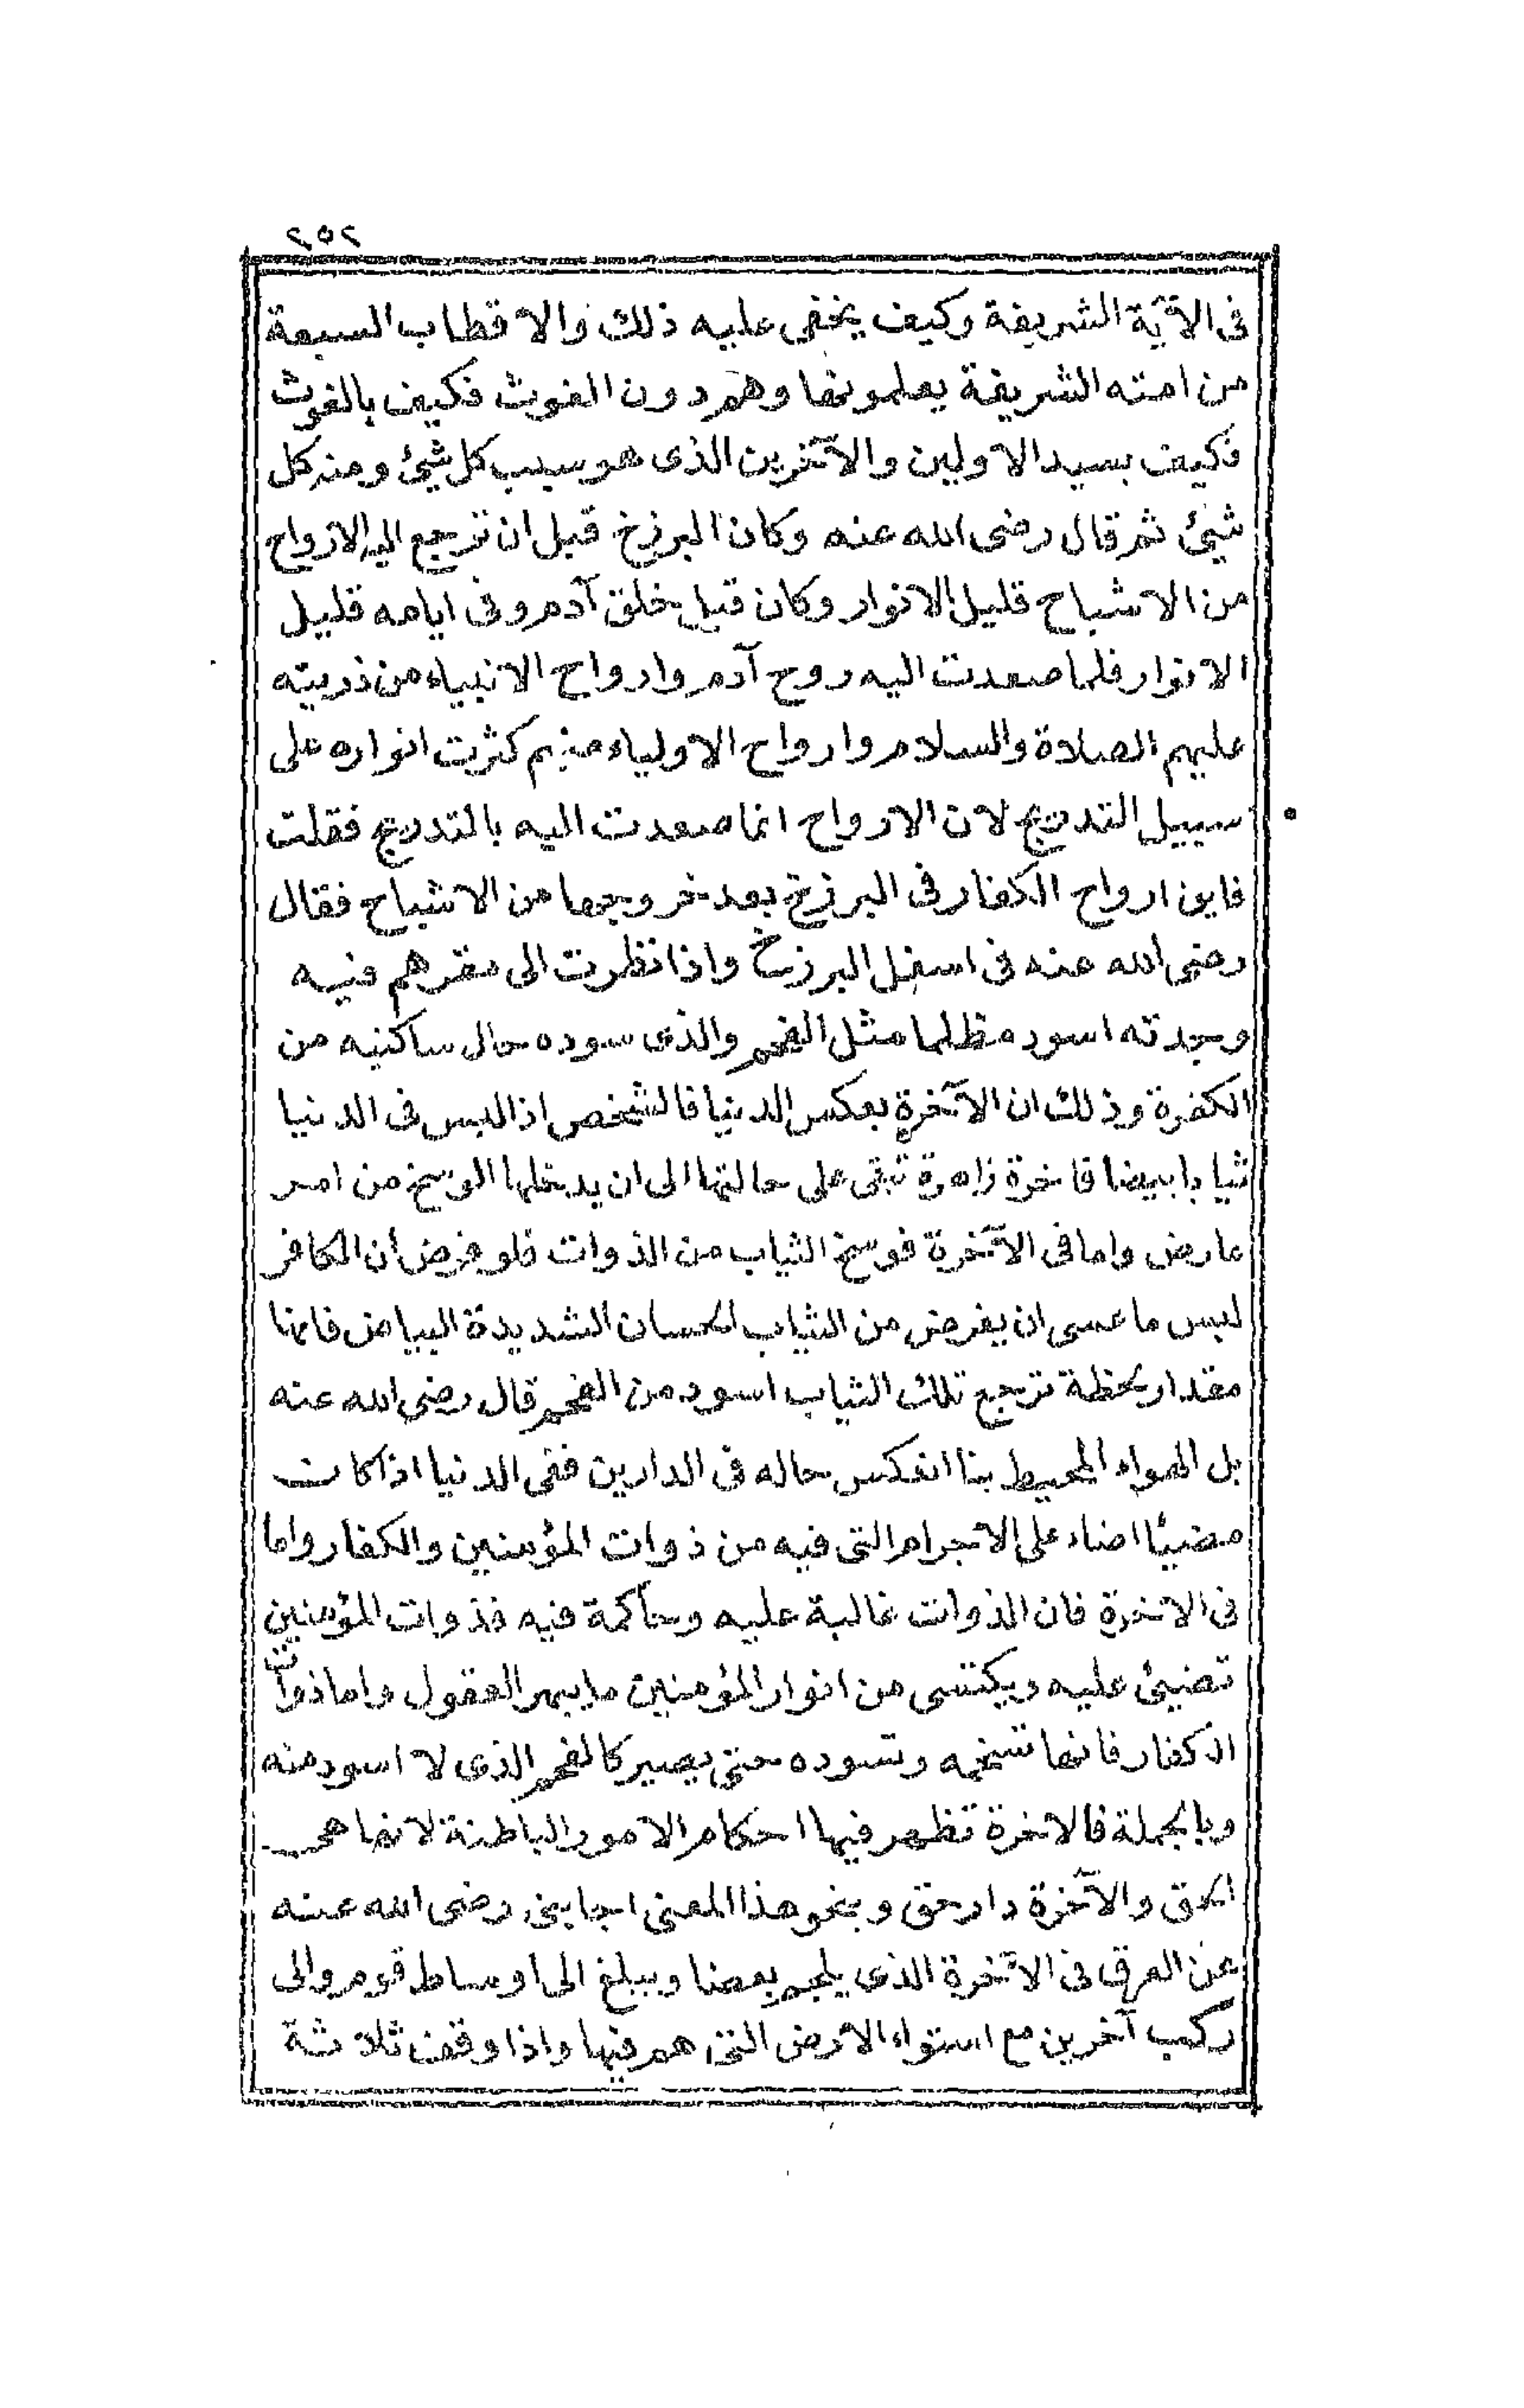 ٢٥٢
فى الآية الشريفة وكيف يخفى عليه ذلك والاقطاب السبعة
من امته الشريفة يعلمونها وهم دون الغوث فكيف بالغوث
فكيف بسيد الاولين والآخرين الذى هو سبب كل شيئ ومنه كل
شيئ ثم قال رضى الله عنه وكان البرزخ قبل ان ترجع اليه الارواح
من الاشباح قليل الانوار وكان قبل خلق آدم وفى ايامه قليل
الانوار فلما صعدت اليه روح آدم وارواح الانبياء من ذريته
عليهم الصلاة والسلام وارواح الاولياء منهم كثرت انواره على
سبيل التدريج لان الارواح انما صعدت اليه بالتدريج فقلت
فاين ارواح الكفار فى البرزخ بعد خروجها من الاشباح فقال
رضى الله عنه فى اسفل البرزخ واذا نظرت الى مقرهم فيه
وجدته اسود مظلما مثل الفحم والذى سوده حال ساكنيه من
الكفرة وذلك ان الآخرة بعكس الدنيا فالشخص اذا لبس فى الدنيا
ثيابا بيضا فاخرة زاهرة تبقى على حالتها الى ان يدخلها الوسخ من امر
عارض واما فى الآخرة فوسخ الثياب من الذوات فلو فرض ان الكافر
لبس ما عسى ان يفرض من الثياب الحسان الشديدة البياض فانها
مقدار لحظة ترجع تلك الثياب اسود من الفحم قال رضى الله عنه
بل الهواء المحيط بنا انعكس حاله فى الدارين ففى الدنيا اذا كان
مضيئا اضاء على الاجرام التى فيه من ذوات المؤمنين والكفار واما
فى الاخرة فان الذوات غالبة عليه وحاكمة فيه فذوات المؤمنين
تضيئ عليه ويكتسى من انوار المؤمنين ما يبهر العقول واما ذوات
الكفار فانها تسخمه وتسوده حتى يصير كالفحم الذى لا اسود منه
وبالجملة فالاخرة تظهر فيها احكام الامور الباطنة لانها هى
الحق والآخرة دار حق وبنحو هذا المعنى اجابنى رضى الله عنه
عن العرق فى الآخرة الذى يلجم بعضا ويبلغ الى اوساط قوم والى
ركب آخرين مع استواء الارض التى هم فيها واذا وقف ثلاثة